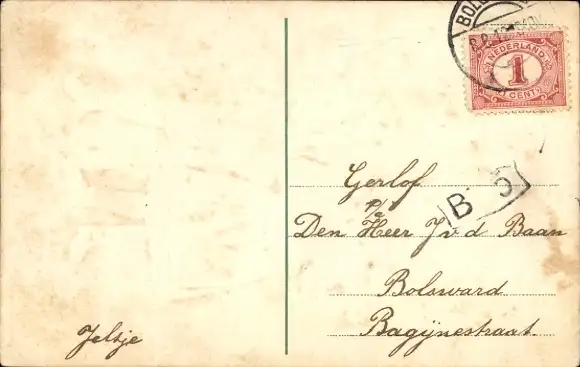 BOLS
NEDERLAND
1
1 CENT
Gerlof
p/a
B
Den Heer J v d Baan
Bolsward
Bagijnestraat
Jelsje